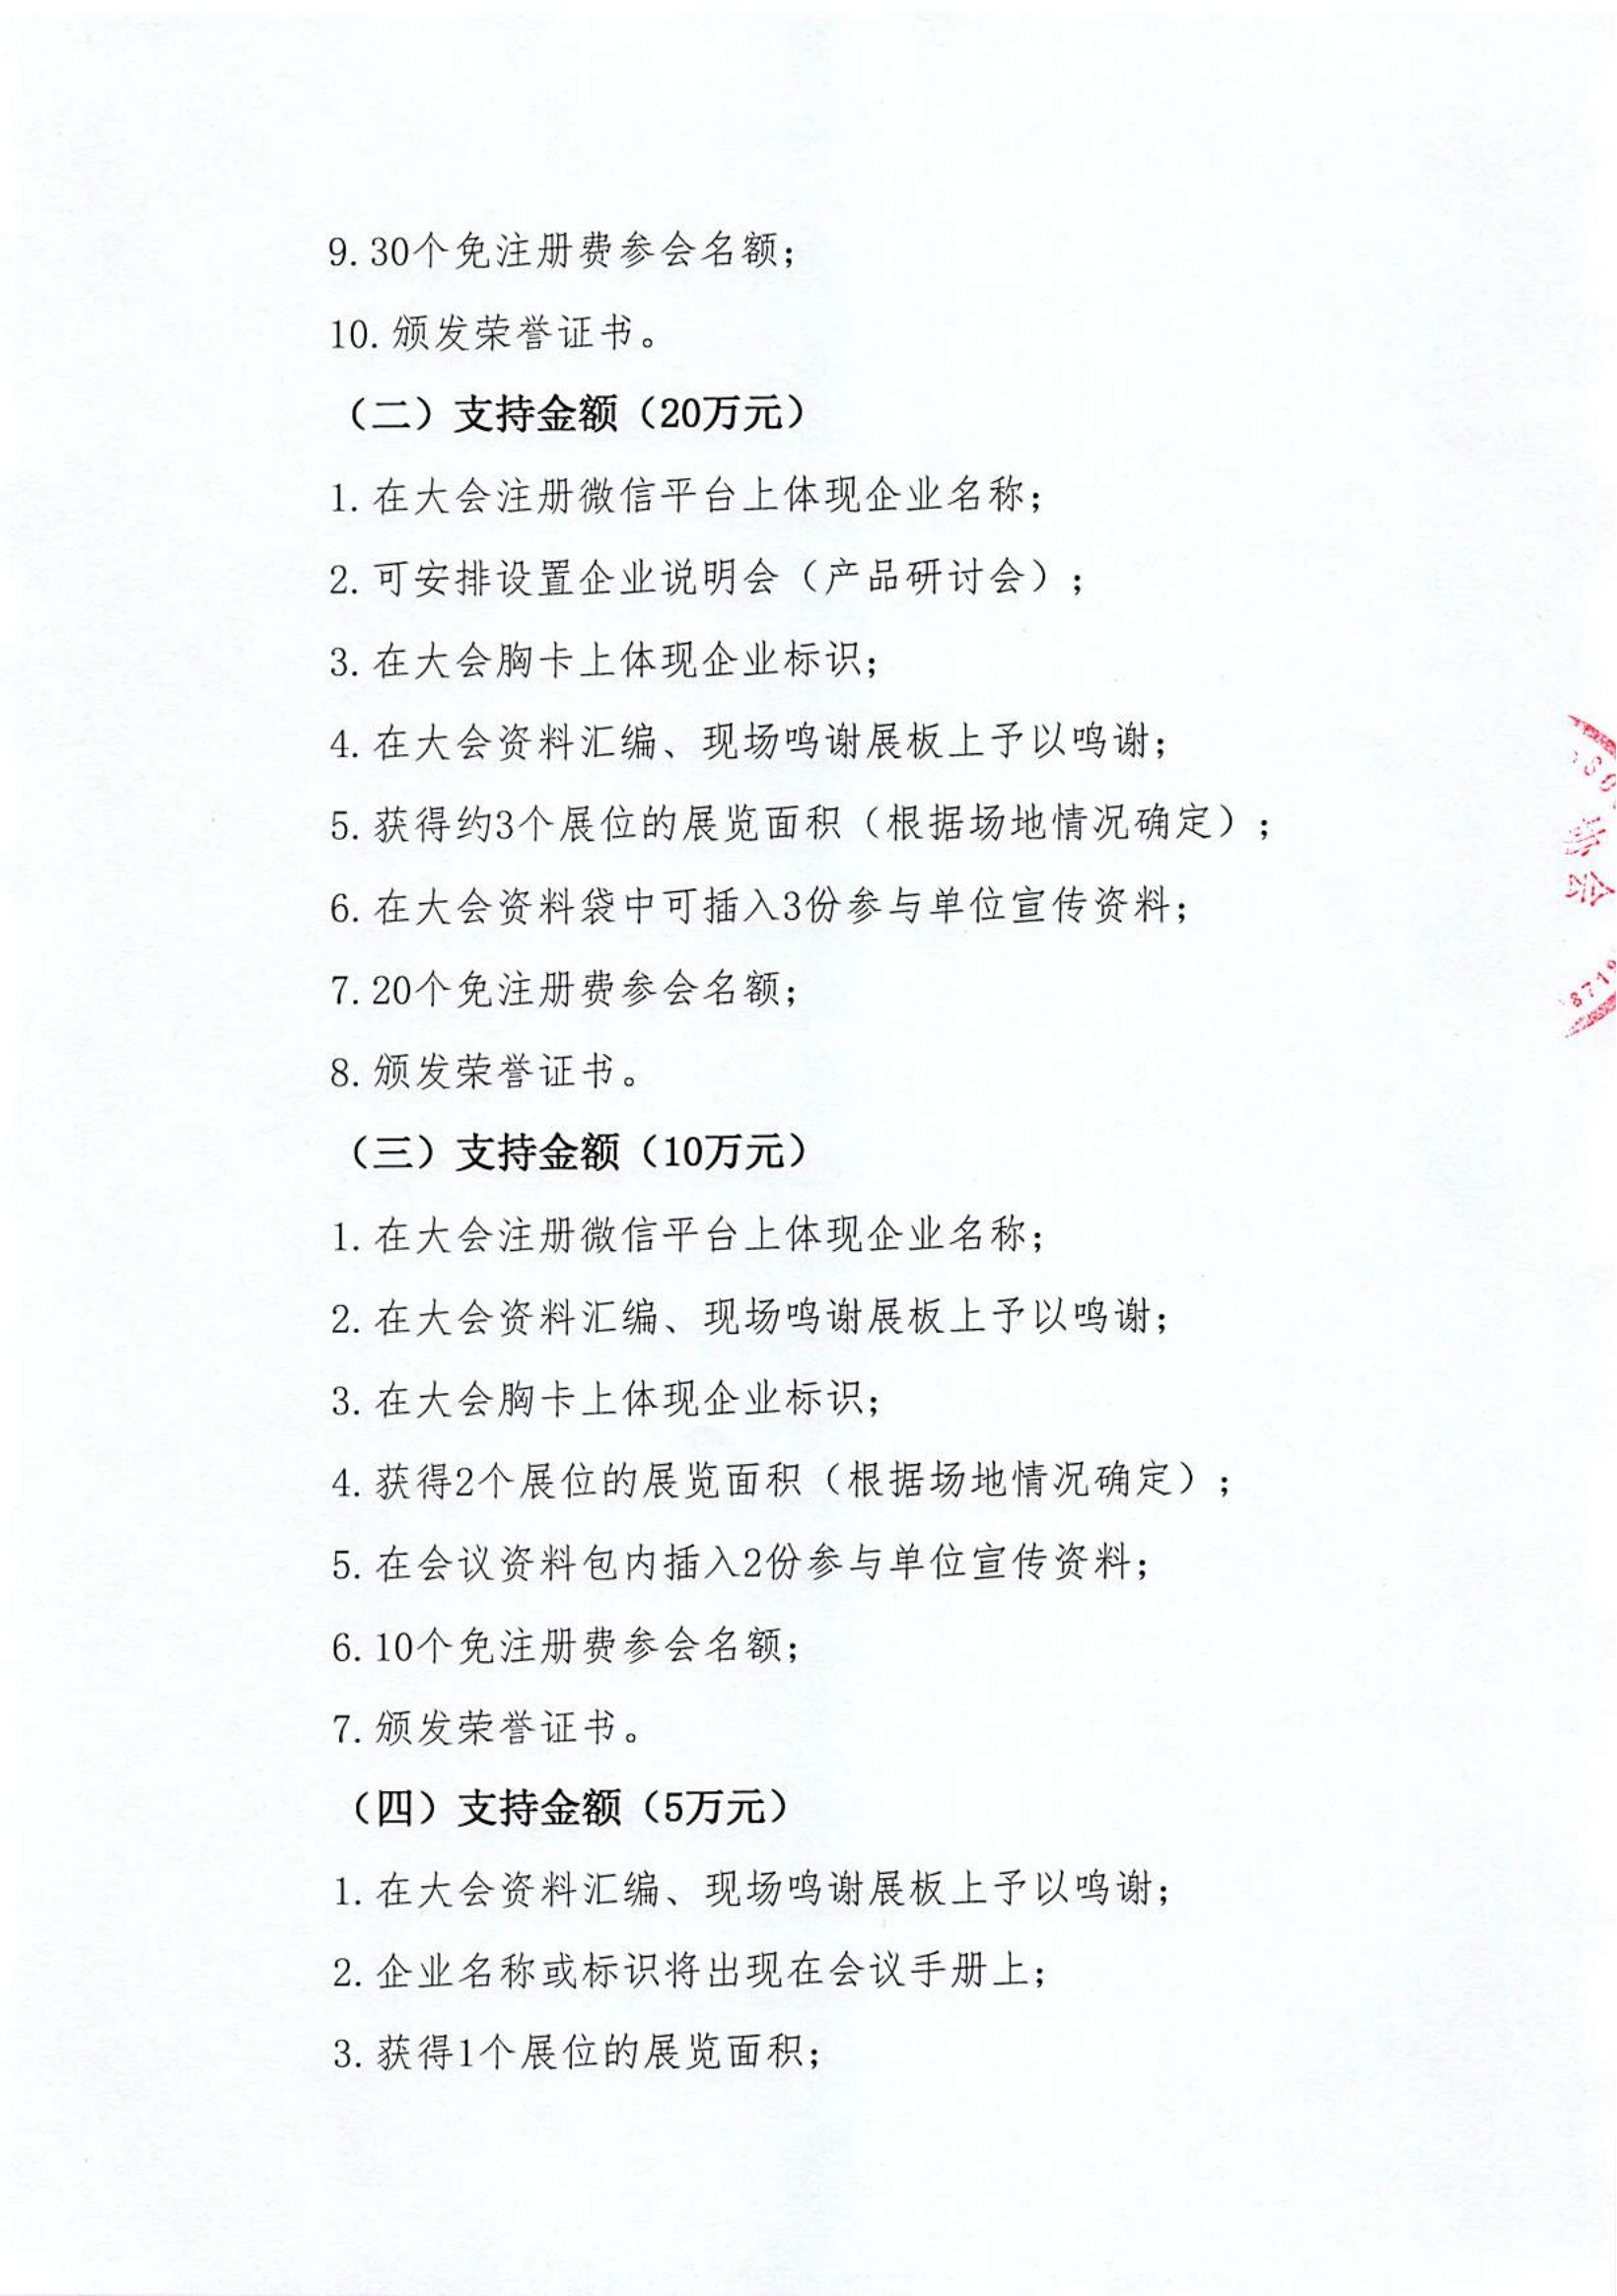 9.30个免注册费参会名额；
10.颁发荣誉证书。
（二）支持金额（20万元）
1.在大会注册微信平台上体现企业名称；
2.可安排设置企业说明会（产品研讨会）；
3.在大会胸卡上体现企业标识；
4.在大会资料汇编、现场鸣谢展板上予以鸣谢；
5.获得约3个展位的展览面积（根据场地情况确定）；
6.在大会资料袋中可插入3份参与单位宣传资料；
7.20个免注册费参会名额；
8.颁发荣誉证书。
（三）支持金额（10万元）
1.在大会注册微信平台上体现企业名称；
2.在大会资料汇编、现场鸣谢展板上予以鸣谢；
3.在大会胸卡上体现企业标识；
4.获得2个展位的展览面积（根据场地情况确定）；
5.在会议资料包内插入2份参与单位宣传资料；
6.10个免注册费参会名额；
7.颁发荣誉证书。
（四）支持金额（5万元）
1.在大会资料汇编、现场鸣谢展板上予以鸣谢；
2.企业名称或标识将出现在会议手册上；
3.获得1个展位的展览面积；
会
8719